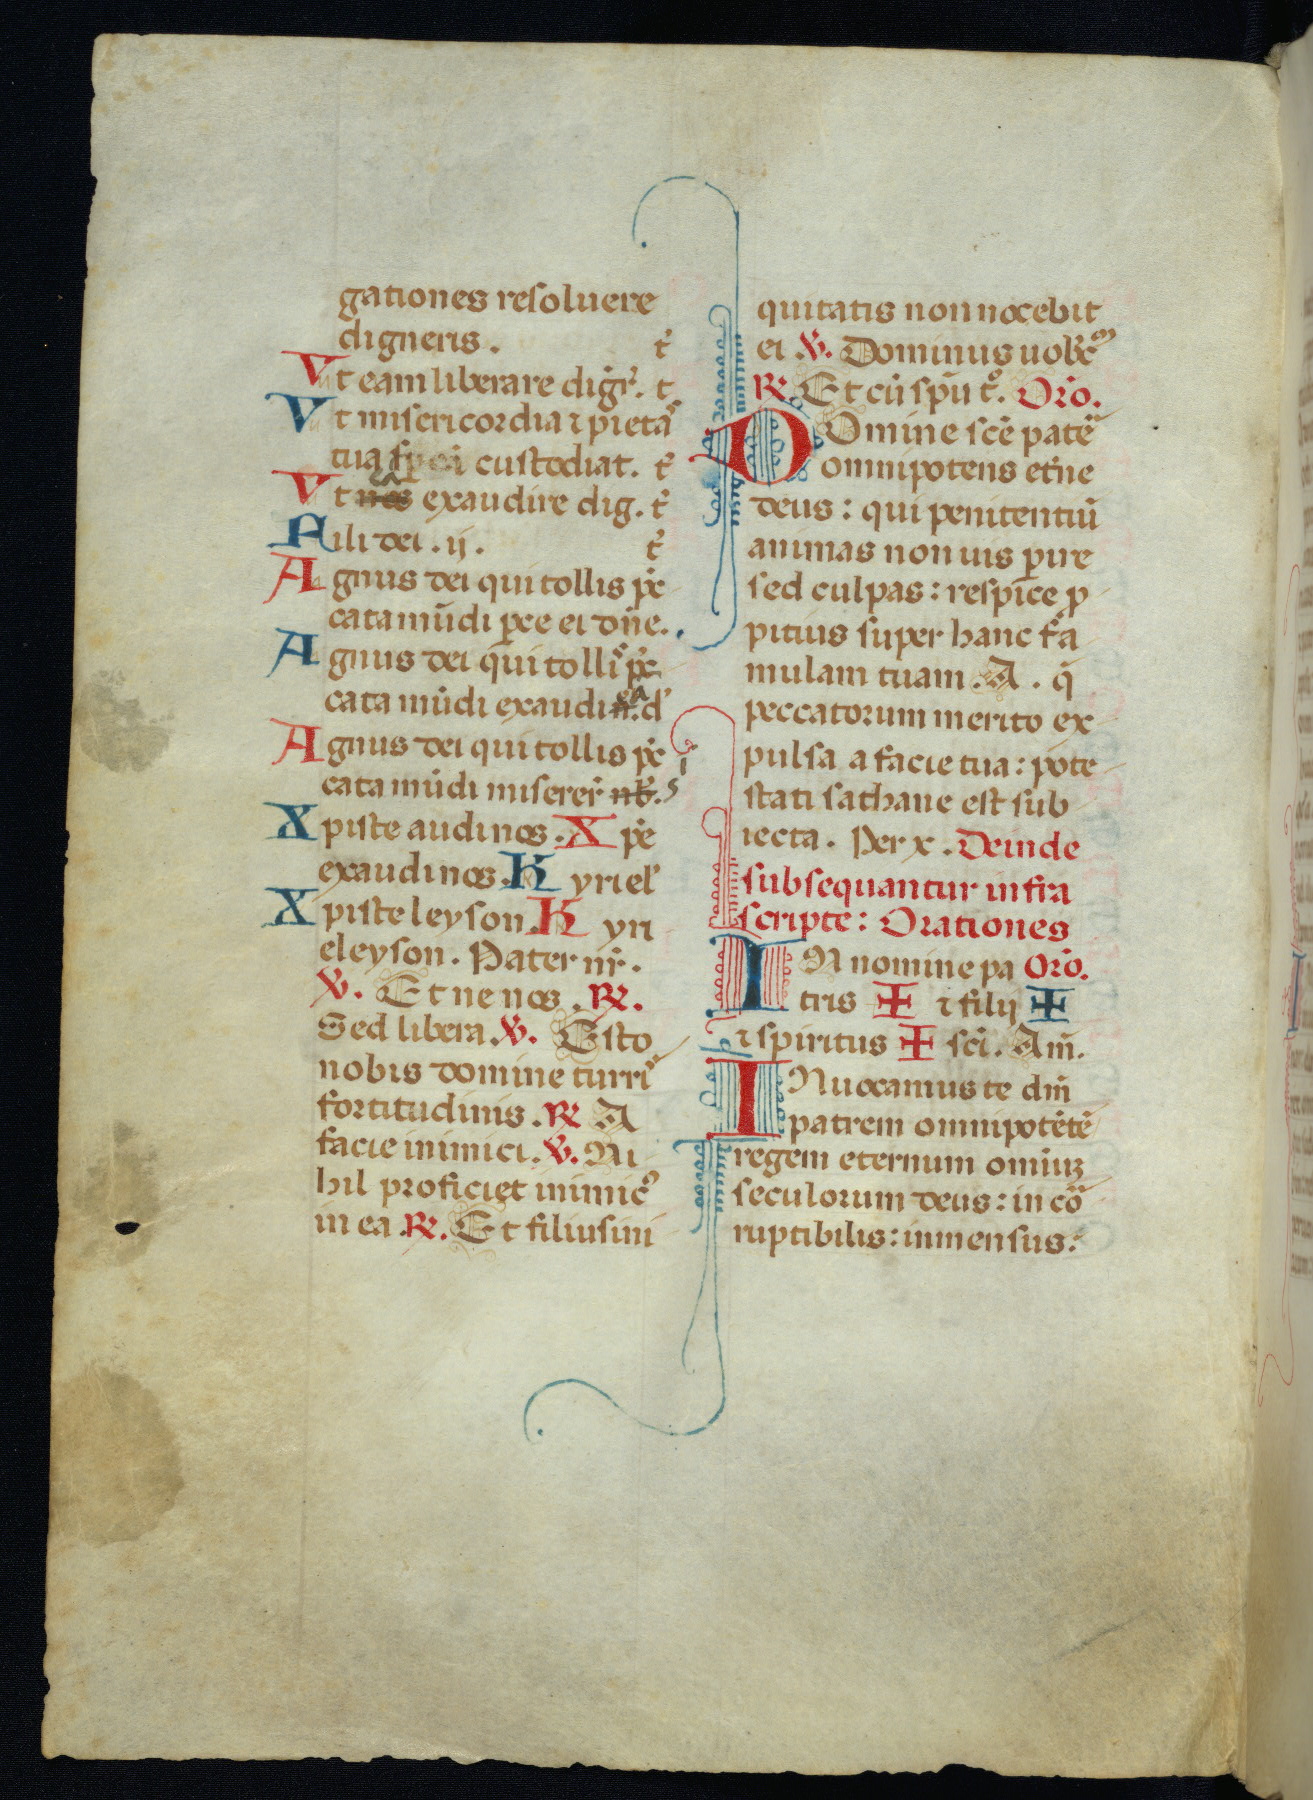 gationes resoluere
digneris. t̄
Ut eam liberare digr̄. t̄
Ut misericordia ⁊ pietas
tua custodiat. t̄
Ut nos exaudire dig. t̄
Fili dei .ij. t̄
Agnus dei qui tollis pec
cata mūdi ꝑce ei dn̄e.
Agnus dei qui tollis pec
cata mūdi exaudi
Agnus dei qui tollis pec
cata mūdi miserer̄ nb̄.
Xpiste audi nos. Xpe
exaudi nos. Kyriel'
Xpiste leyson. Kyri
eleyson. Pater nr̄.
℣. Et ne nos. ℟.
Sed libera. ℣. Esto
nobis domine turris
fortitudinis. ℟ A
facie inimici. ℣. Ni
hil proficiet inimicus
in ea ℟. Et filius ini
quitatis non nocebit
ei ℣. Dominus uobc̄
℟. Et cū spū t̊. Oro.
Domine sc̄e patē
omnipotens et̄ne
deus: qui penitentiū
animas non uis ꝑire
sed culpas: respice ꝓ
pitius super hanc fa
mulam tuam. A. q̄
peccatorum merito ex
pulsa a facie tua: pote
stati sathane est sub
iecta. Per x. Deinde
subsequantur infra
scripte: Orationes
IN nomine pa Oro.
tris ✠ ⁊ filij ✠
⁊ spiritus ✠ sc̄i. Am̄.
INuocamus te dm̄
patrem omnipotētē
regem eternum omīuꝫ
seculorum deus: in cor
ruptibilis: inmensus: